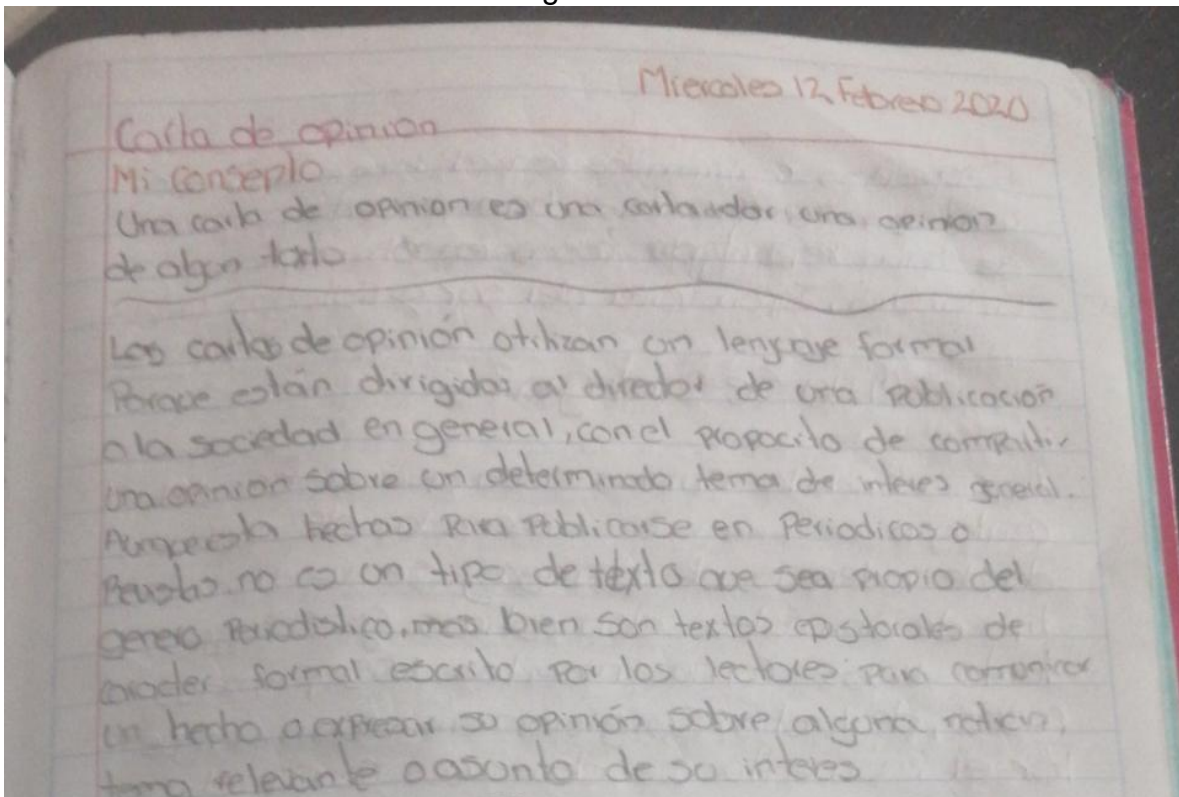 Miercoles 12 Febrero 2020
Carta de opinion
Mi consepto
Una carta de opinion es una carta dar una opinion
de algun texto
Las cartas de opinión utilizan un lenguaje formal
Porque están dirigidas al director de una publicación
o la sociedad en general, con el propocito de compartir
una opinion sobre un determinado tema de interes general.
Aunque esta hechas para publicarse en Periodicos o
Revistas. no es un tipo de téxto que sea propio del
genero Periodistico, mas bien son textos de
caracter formal escrito por los lectores para comunicar
un hecho o expresar su opinión sobre alguna noticia,
tema relevante o asunto de su interes